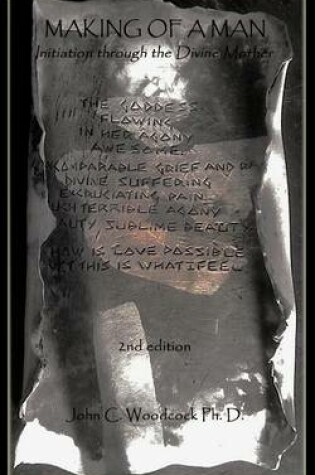 MAKING OF A MAN
Initiation through the Divine Mother
THE GODDESS
FLOWING
IN HER AGONY
AWESOME
GRIEF AND
DIVINE SUFFERING
EXCRUCIATING PAIN
TERRIBLE AGONY
SUBLIME BEAUTY
HOW IS LOVE POSSIBLE
YET THIS IS WHAT I FEEL
2nd edition
John C. Woodcock Ph. D.